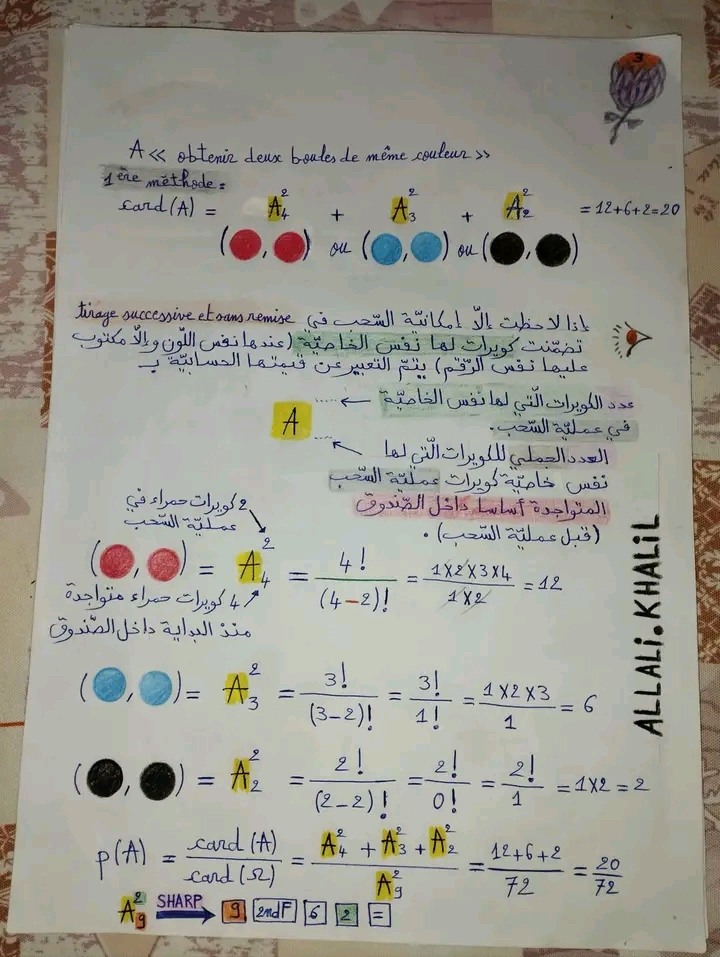 3
A << obtenir deux boules de même couleur >>
1ère méthode :
card(A) = A₄² + A₃² + A₂² = 12+6+2=20
( , ) ou ( , ) ou ( , )
إذا لاحظت إلّا إمكانيّة السّحب في tirage successive et sans remise
تضمّنت كويرات لها نفس الخاصيّة (عندها نفس اللّون وإلّا مكتوب
عليها نفس الرّقم) يتمّ التعبير عن قيمتها الحسابيّة بـ
عدد الكويرات الّتي لها نفس الخاصيّة
في عمليّة السّحب.
A
العدد الجملي للكويرات الّتي لها
نفس خاصيّة كويرات عمليّة السّحب
المتواجدة أساسا داخل الصّندوق
(قبل عمليّة السّحب).
2 كويرات حمراء في
عمليّة السّحب
( , ) = A₄² = 4!/(4-2)! = 1X2X3X4/1X2 = 12
4 كويرات حمراء متواجدة
منذ البداية داخل الصّندوق
( , ) = A₃² = 3!/(3-2)! = 3!/1! = 1X2X3/1 = 6
( , ) = A₂² = 2!/(2-2)! = 2!/0! = 2!/1 = 1X2 = 2
p(A) = card(A)/card(Ω) = A₄² + A₃² + A₂²/A₉² = 12+6+2/72 = 20/72
A₉² SHARP 9 2ndF 6 2 =
ALLALI.KHALIL